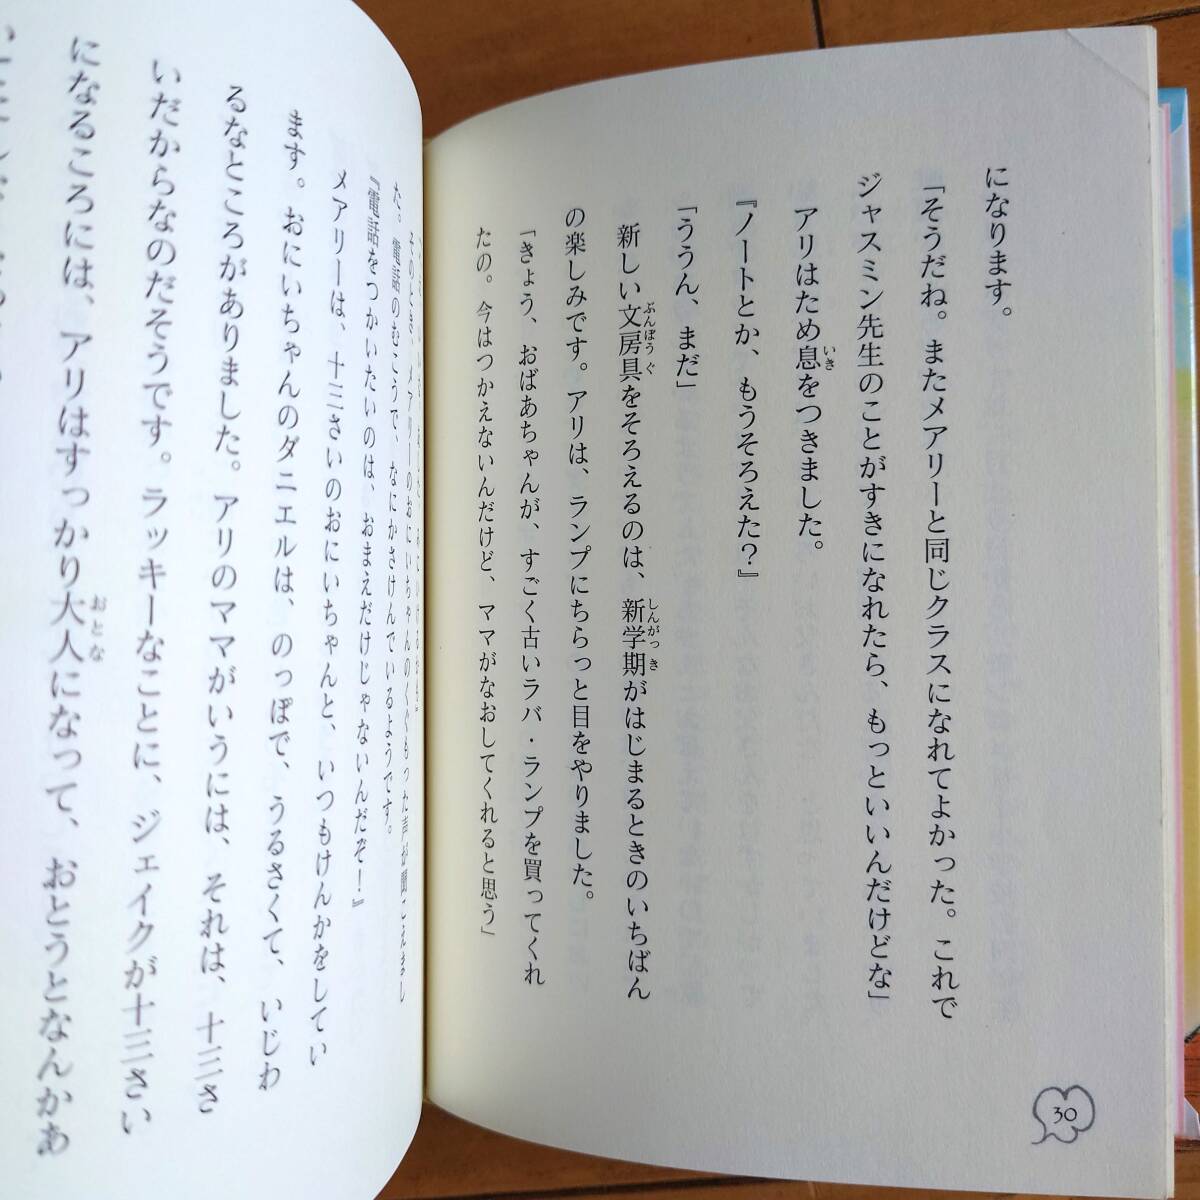 になります。
「そうだね。またメアリーと同じクラスになれてよかった。これで
ジャスミン先生のことがすきになれたら、もっといいんだけどな」
アリはため息をつきました。
『ノートとか、もうそろえた？』
「ううん、まだ」
新しい文房具をそろえるのは、新学期がはじまるときのいちばん
の楽しみです。アリは、ランプにちらっと目をやりました。
「きょう、おばあちゃんが、すごく古いラバ・ランプを買ってくれ
たの。今はつかえないんだけど、ママがなおしてくれると思う」
30
そのとき、メアリーのおにいちゃんのくぐもった声が聞こえまし
た。電話のむこうで、なにかさけんでいるようです。
『電話をつかいたいのは、おまえだけじゃないんだぞ！』
メアリーは、十三さいのおにいちゃんと、いつもけんかをしてい
ます。おにいちゃんのダニエルは、のっぽで、うるさくて、いじわ
るなところがありました。アリのママがいうには、それは、十三さ
いだからなのだそうです。ラッキーなことに、ジェイクが十三さい
になるころには、アリはすっかり大人になって、おとうとなんかあ